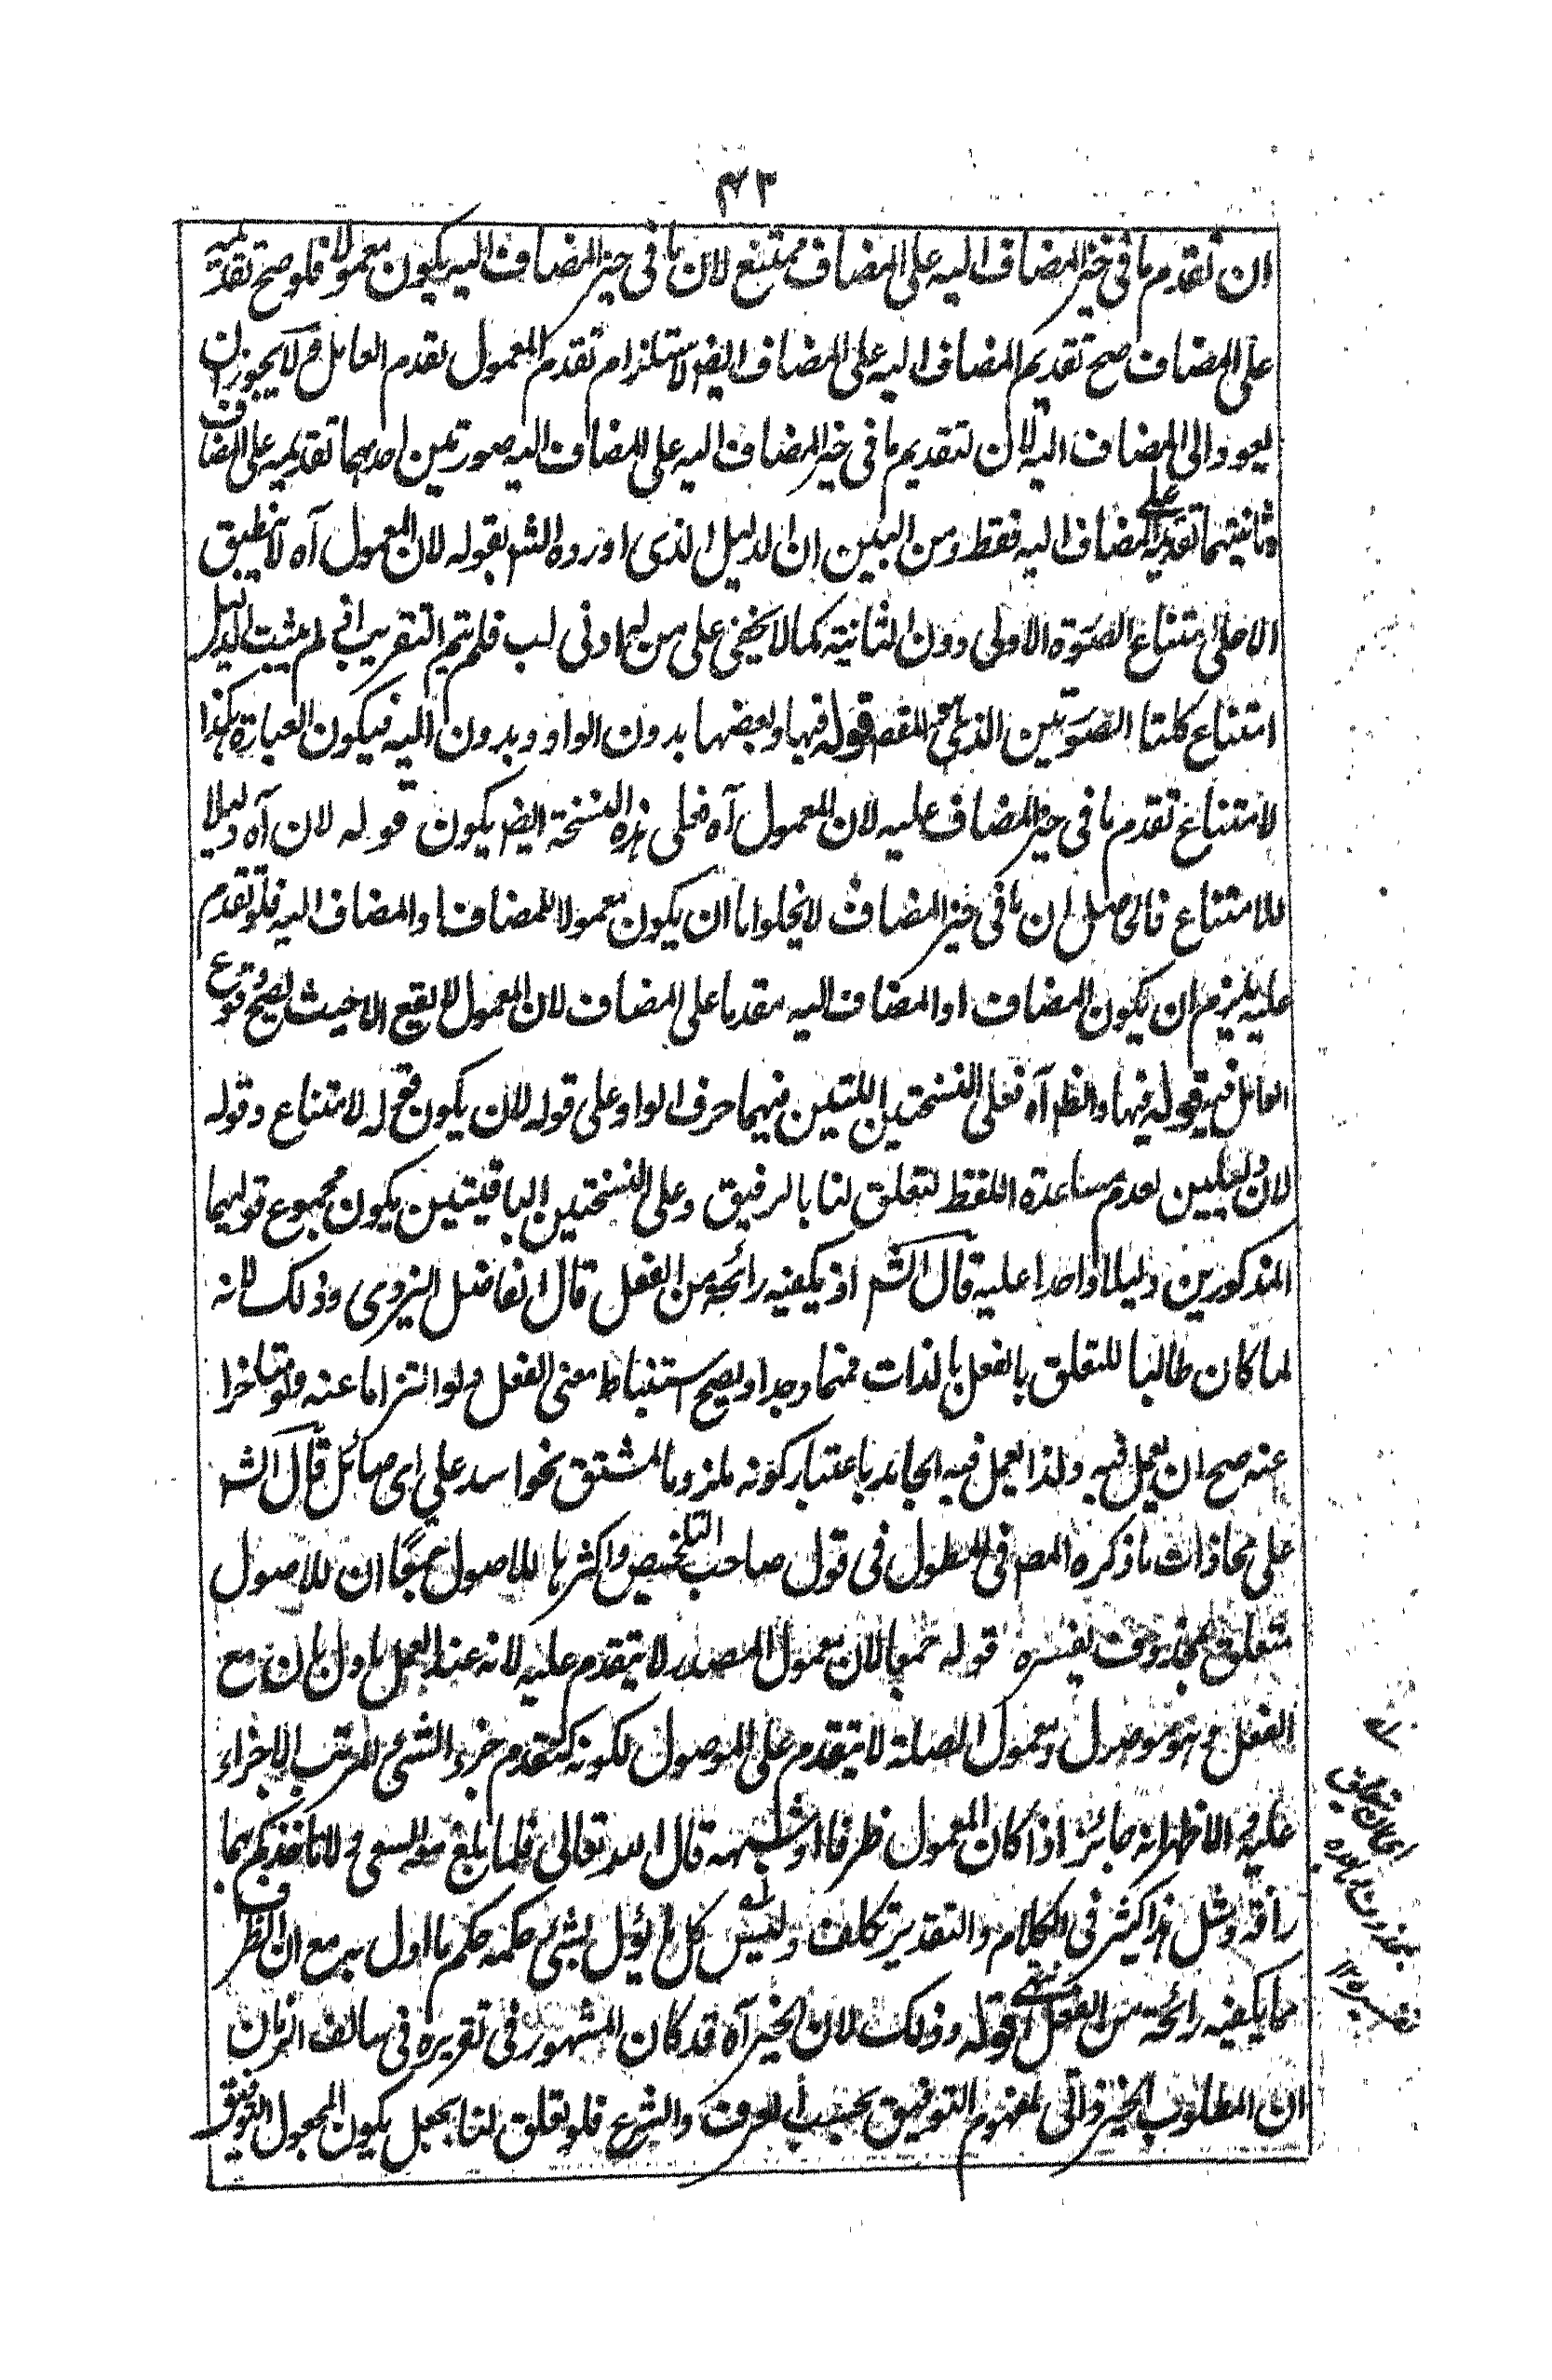 ٤٣
ان تقدم ما فى حيز المضاف اليه على المضاف ممتنع لان ما فى حيز المضاف اليه يكون معمولا فلو صح تقديمه
على المضاف صح تقديم المضاف اليه على المضاف ايضا لاستلزام تقدم المعمول تقدم العامل و لا يجوز ان
يعود الى المضاف اليه لان لتقديم ما فى حيز المضاف اليه على المضاف اليه صورتين احدهما تقديمه على المضاف
و ثانيتهما تقديمه على المضاف اليه فقط ومن البين ان الدليل الذى اورده الشـ بقوله لان المعمول آه لا ينطبق
الا على امتناع الصورة الاولى دون الثانية كما لا يخفى على من له ادنى لب فلم يتم التقريب اى لم يثبت الدليل
امتناع كلتا الصورتين الذى هو المقصـ قوله فيها وبعضها بدون الواو وبدون اليه فيكون العبارة هكذا
لامتناع تقدم ما فى حيز المضاف عليه لان المعمول آه فعلى هذه النسخة ايضـ يكون قوله لان آه دليلا
للامتناع فالحاصل ان ما فى حيز المضاف لا يخلو اما ان يكون معمولا للمضاف او المضاف اليه فلو تقدم
عليه يلزم ان يكون المضاف او المضاف اليه مقدما على المضاف لان المعمول لا يقع الا حيث يصح وقوع
العامل فيه قوله فيها والظـ آه فعلى النسختين اللتين فيهما حرف الواو على قوله لان يكون قوله لامتناع وقوله
لان دليلين لعدم مساعدة اللفظ لتعلق لنا بالرفيق وعلى النسختين الباقيتين يكون مجموع قوليهما
المذكورين دليلا واحدا عليه قال الشـ اذ يكفيه رائحة من الفعل قال الفاضل اليزدى وذلك لانه
لما كان طالبا للتعلق بالفعل بالذات فمتى ما وجد او يصح استنباط معنى الفعل ولو التزاما عنه ولو متاخرا
عنه صح ان يعمل فيه ولذا يعمل فيه الجامد باعتبار كونه ملزوما لمشتق نحو اسد على اى صائل قال الشـ
على محاذات ما ذكره المصـ فى المطول فى قول صاحب التلخيص واكثرها للاصول جمعًا ان للاصول
متعلق بمحذوف يفسره قوله جمعا لان معمول المصدر لا يتقدم عليه لانه عند العمل ماول بان مع
الفعل وهو موصول ومعمول الصلة لا يتقدم على الموصول لكونه كتقدم جزء الشئ المرتب الاجزاء
عليه والاظهر انه جائز اذا كان المعمول ظرفا او شبهه قال الله تعالى فلما بلغ معه السعى ولا تاخذكم بهما
رأفة ومثل هذا كثير فى الكلام والتقدير تكلف وليس كل ما يؤل بشئ حكمه حكم ما اول به مع ان الظرف
مما يكفيه رائحة من الفعل انتهى قوله وذلك لان الخير آه قد كان المشهور فى تقريره فى سالف الزمان
ان المطلوب الخير ذاتى لمفهوم التوفيق بحسب العرف والشرع فلو تعلق لنا بجعل يكون المجعول التوفيق